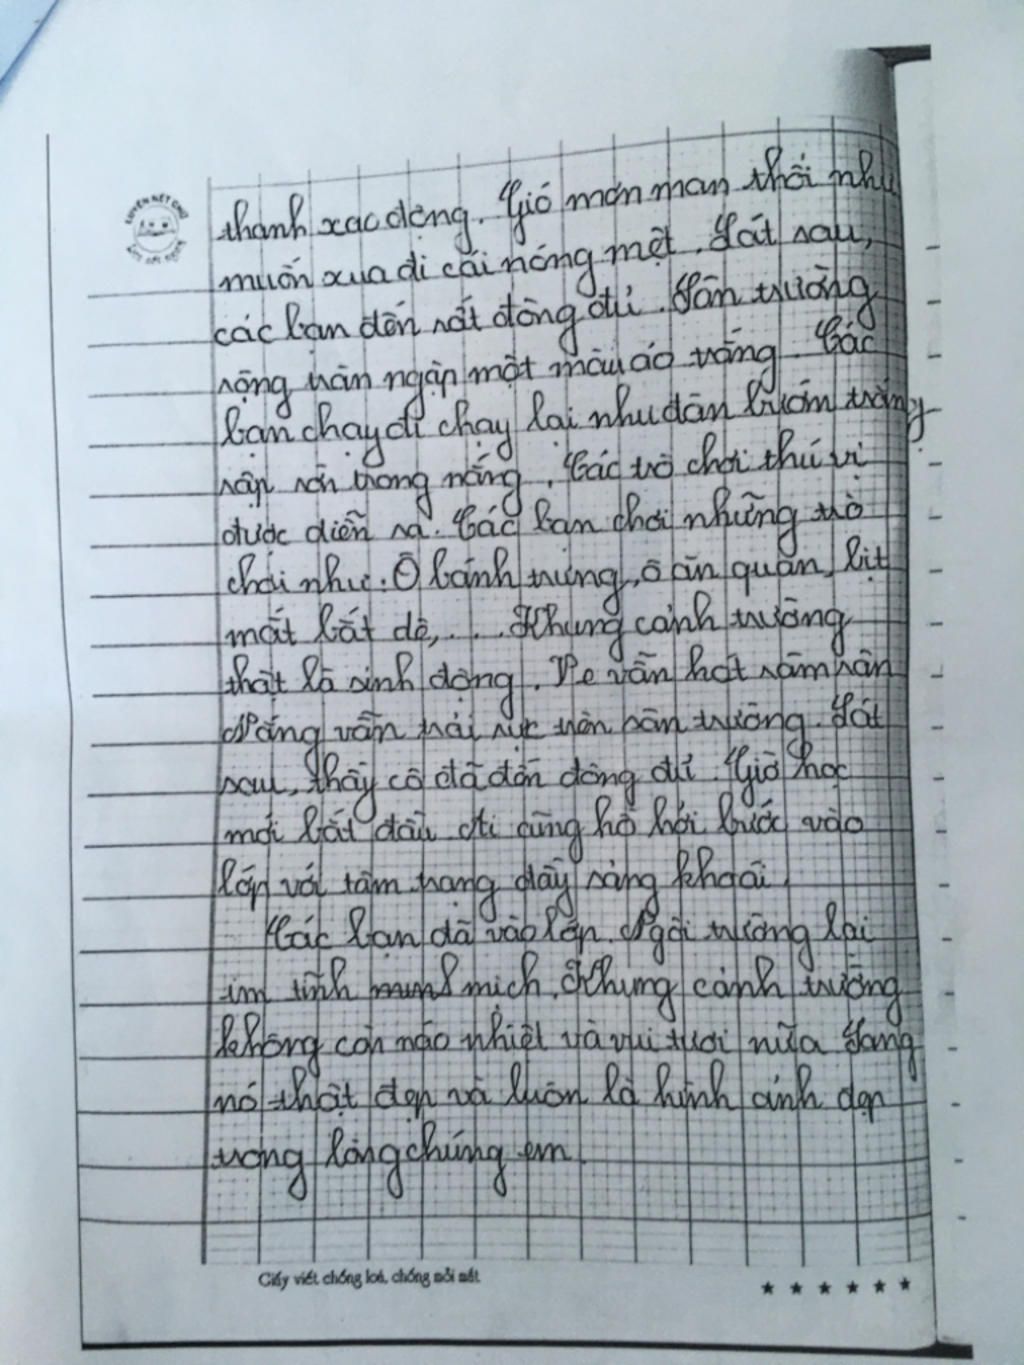 LUYỆN NÉT CHỮ
thanh xao động. Gió mơn man thổi như
muốn xua đi cái nóng mệt. Lát sau,
các bạn đến rất đông đủ. Sân trường
rộng tràn ngập một màu áo trắng. Các
bạn chạy đi chạy lại như đàn bướm trắng
rập rờn trong nắng. Các trò chơi thú vị
được diễn ra. Các bạn chơi những trò
chơi như: Ô bánh trưng, ô ăn quan, bịt
mắt bắt dê,.... Khung cảnh trường
thật là sinh động. Ve vẫn hát râm ran
Nắng vẫn trải rực trên sân trường. Lát
sau, thầy cô đã đến đông đủ. Giờ học
mới bắt đầu. Ai cũng hồ hởi bước vào
lớp với tâm trạng đầy sảng khoái.
Các bạn đã vào lớp. Ngôi trường lại
im tĩnh mịch. Khung cảnh trường
không còn náo nhiệt và vui tươi nữa. Song
nó thật đẹp và luôn là hình ảnh đẹp
trong lòng chúng em.
Giấy viết chống loá, chống mỏi mắt